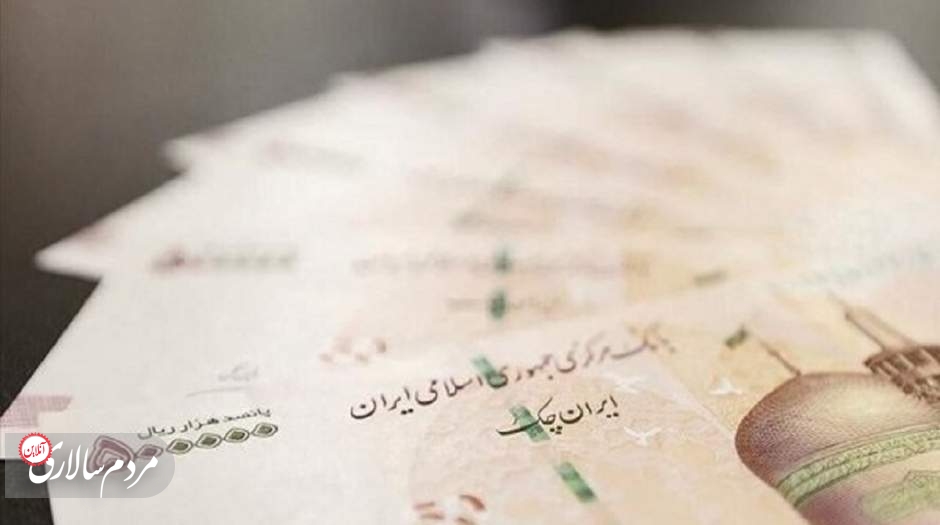 بانک مرکزی جمهوری اسلامی ایران
ایران چک
پانصد هزار ریال
۵۰۰۰۰۰
مردم سالاری
آنلاین